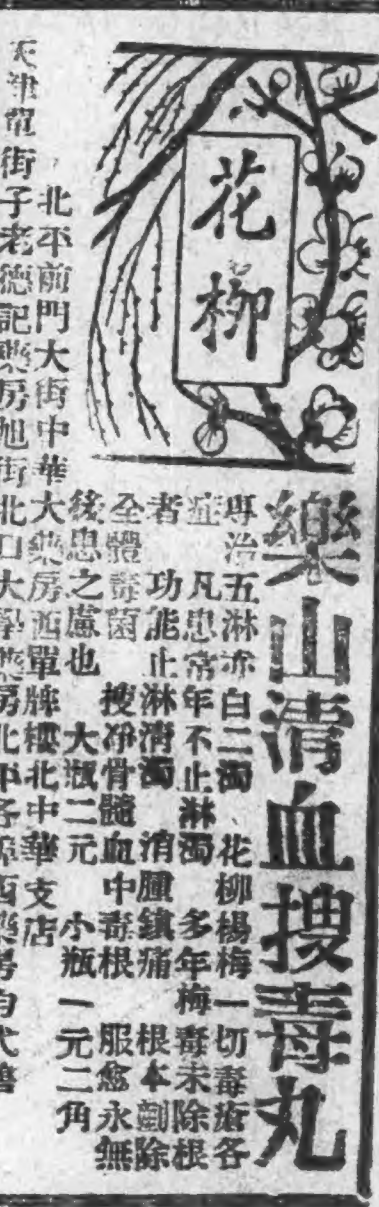 花柳
樂山清血搜毒丸
專治五淋赤白二濁、花柳楊梅一切毒瘡各
症 凡患常年不止淋濁 多年梅毒未除根
者 功能止淋清濁 消腫鎮痛 根本剷除
全體毒菌 搜凈骨髓血中毒根 服愈永無
後患之慮也 大瓶二元 小瓶一元二角
北平前門大街中華大藥房西單牌樓北中華支店
天津單街子老德記藥房旭街北口大學藥房北平各西藥房均代售